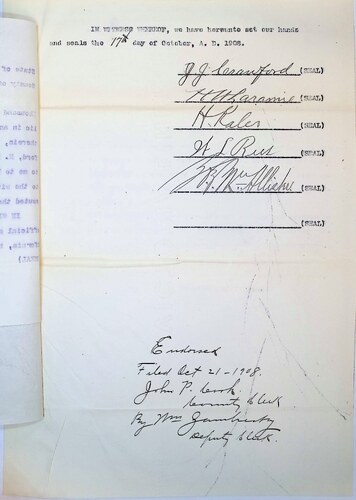 IN WITNESS WHEREOF, we have hereunto set our hands
and seals the 17th day of October, A. D. 1908.
J. J. Crawford (SEAL)
(SEAL)
H. Kaler (SEAL)
W L (SEAL)
(SEAL)
(SEAL)
Endorsed
Filed Oct 21-1908.
John P. Cook.
County Clerk
By Wm
Deputy Clerk.